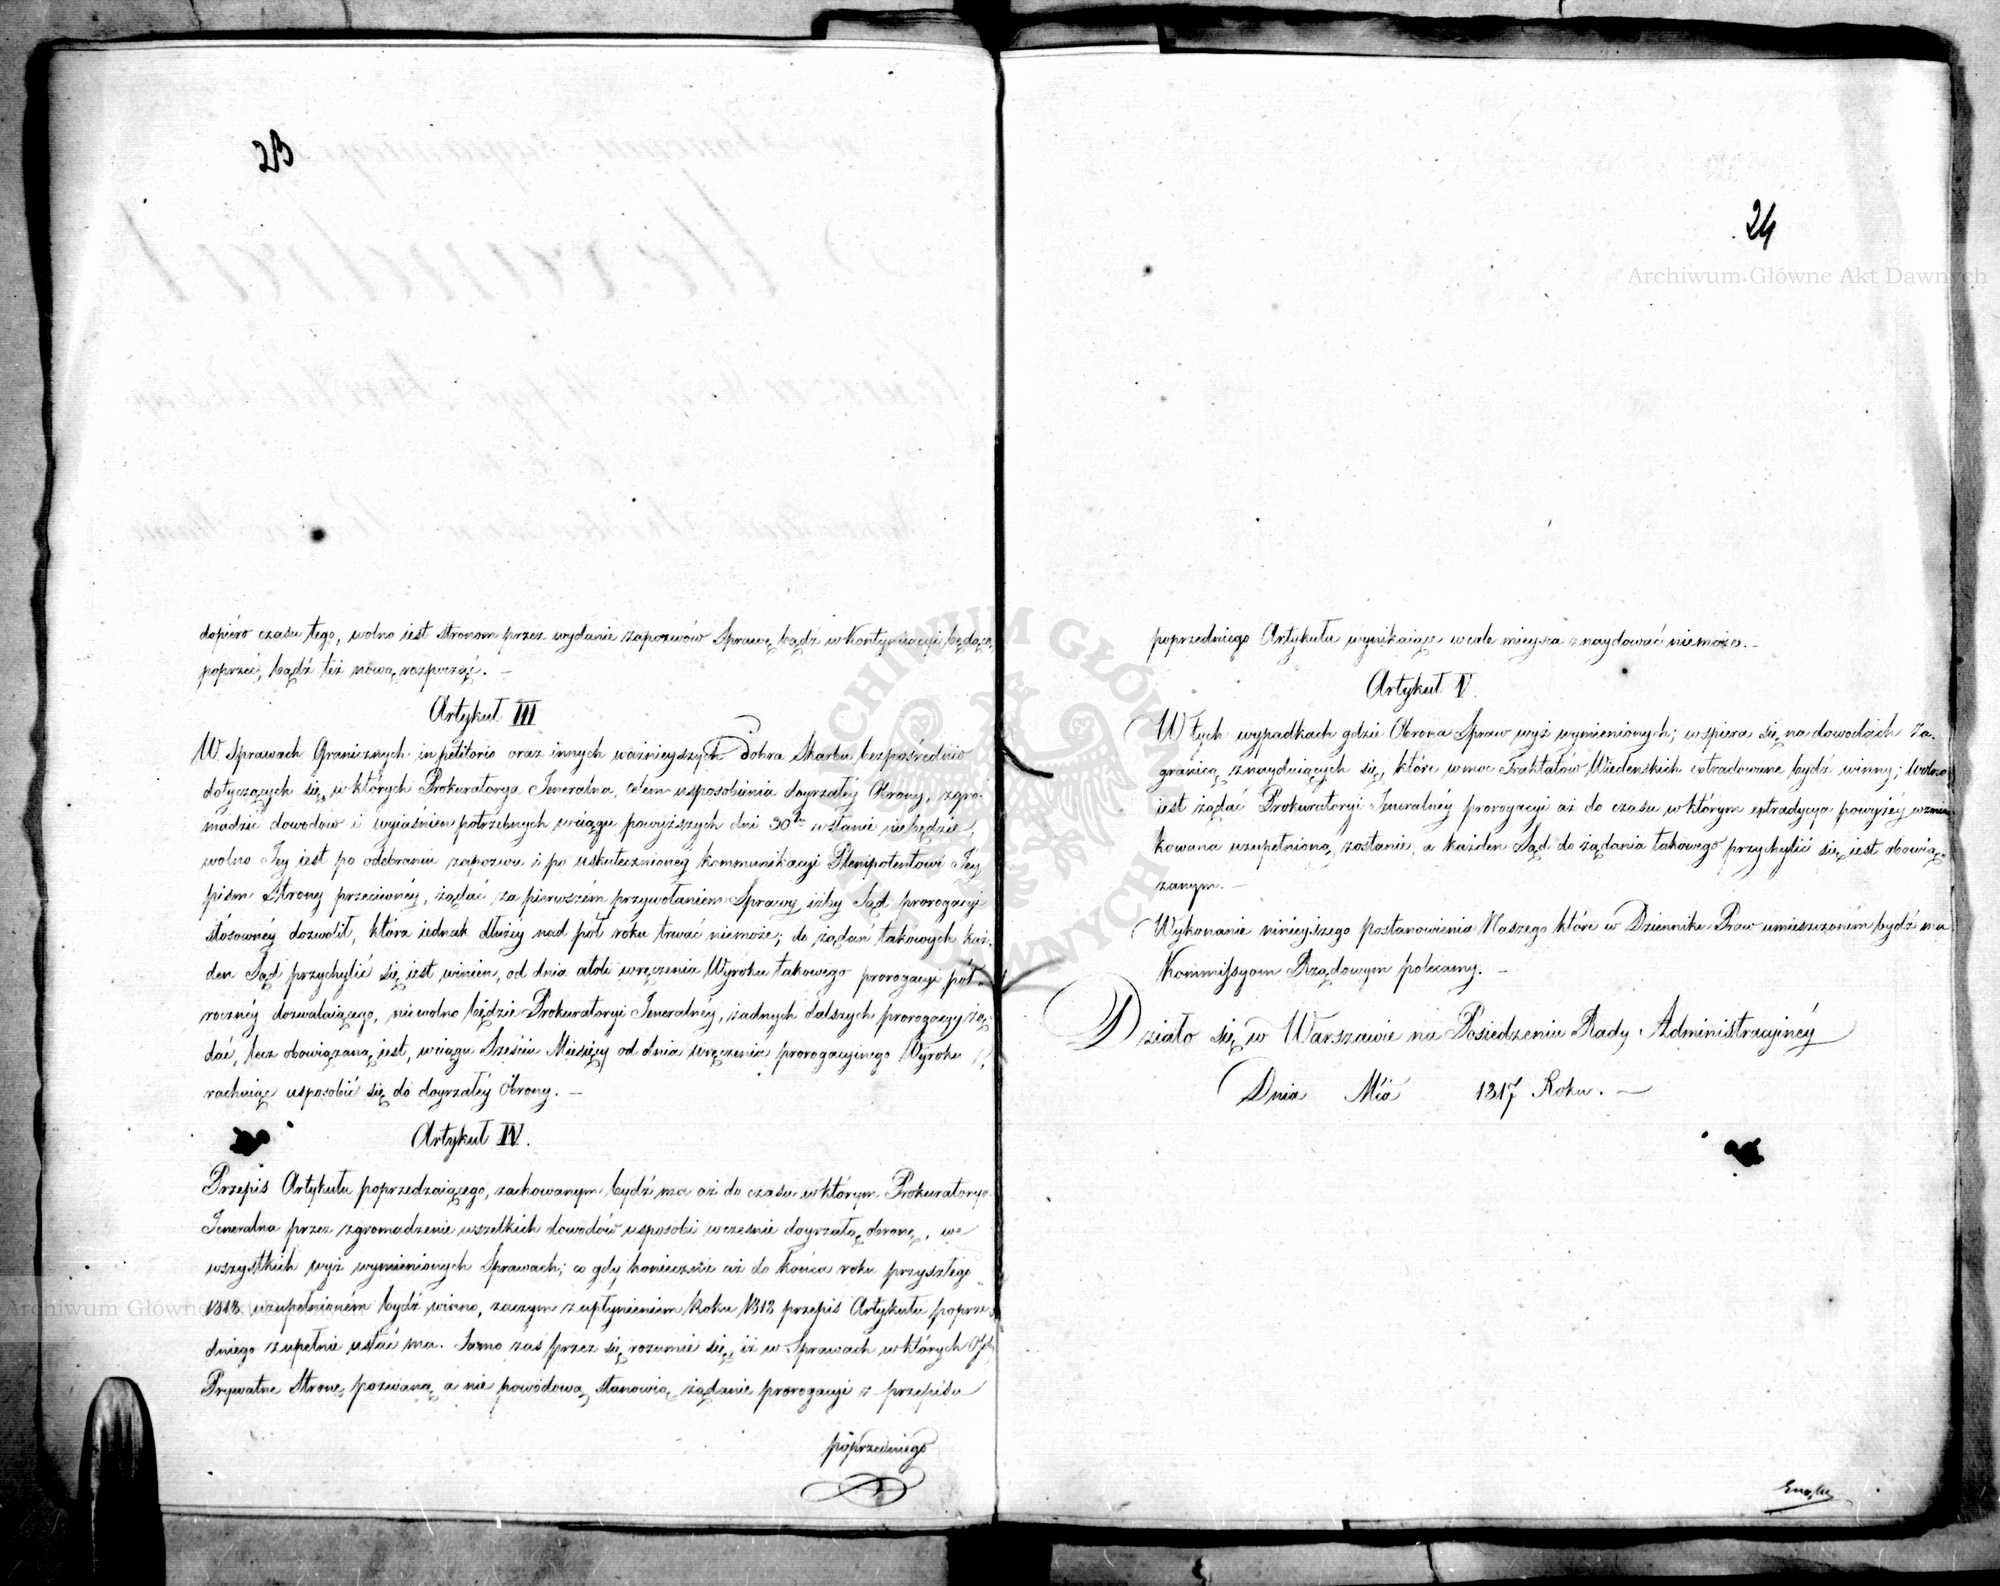 23
dopiéro czasu tego, wolno iest stronom przez wydanie zapozwów Sprawę bądź w kontynuacyi będącą,
poprzeć, bądź też nową rozpocząć. —
Artykuł III
W Sprawach Granicznych in petitorio oraz innych ważnieyszych Dobra Skarbu bezpośrednio
dotyczących się, w których Prokuratorya Jeneralna, celem usposobienia doyrzałéy Obrony, zgro-
madzić dowodów i wyiaśnień potrzebnych wciągu powyższych dni 30tu wstanie niebędzie,
wolno Jey iest po odebraniu zapozwu i po uskutecznioney kommunikacyi Plenipotentowi Jey
pism Strony przeciwnéy, żądać za pierwszém przywołaniem Sprawy, iżby Sąd prorogacyi
stósownéy dozwolił, która iednak dłużéy nad pół roku trwać niemoże; do żądań takowych każ-
den Sąd przychylić się iest winien, od dnia atoli wręczenia Wyroku takowego prorogacyi pół-
rocznéy dozwalaiącego, niewolno będzie Prokuratoryi Jeneralnéy, żadnych dalszych prorogacyy żą-
dać, lecz obowiązaną iest, wciągu Sześciu Miesięcy od dnia wręczenia prorogacyinego Wyroku
rachuiąc usposobić się do doyrzałéy Obrony. —
Artykuł IV.
Przepis Artykułu poprzedzaiącego, zachowanym bydź ma aż do czasu w którym Prokuratorya
Jeneralna przez zgromadzenie wszelkich dowodów usposobi wcześnie doyrzałą obronę, we
wszystkich wyż wymienionych Sprawach; co gdy koniecznie aż do końca roku przyszłego
1818 uzupełnioném bydź winno, zaczym z upłynieniem Roku 1818 przepis Artykułu poprze-
dniego zupełnie ustać ma. Samo zaś przez się rozumié się, iż w Sprawach w których
Prywatne Stronę pozwaną a nie powodową stanowią żądanie prorogacyi z przepisu
poprzedniego
24
poprzedniego Artykułu wynikaiące wcale mieysca znaydować niemoże. —
Artykuł V.
W tych wypadkach gdzie Obrona Spraw wyż wymienionych; wspiera się na dowodach za-
granicą znayduiących się, które wmoc Traktatów Wiedenskich extradowane bydź winny; Wolno
iest żądać Prokuratoryi Jeneralnéy prorogacyi aż do czasu w którym extradycya powyżéy wzmian-
kowana uzupełnioną zostanie, a każden Sąd do żądania takowego przychylić się iest obowią-
zanym. —
Wykonanie ninieyszego postanowienia Naszego które w Dzienniku Praw umieszczoném bydź ma
Kommissyom Rządowym polecamy. —
Działo się w Warszawie na Posiedzeniu Rady Administracyinéy
Dnia Mca 1817 Roku. —
Archiwum Główne Akt Dawnych
Archiwum Główne Akt Dawnych
ARCHIWUM GŁÓWNE AKT DAWNYCH